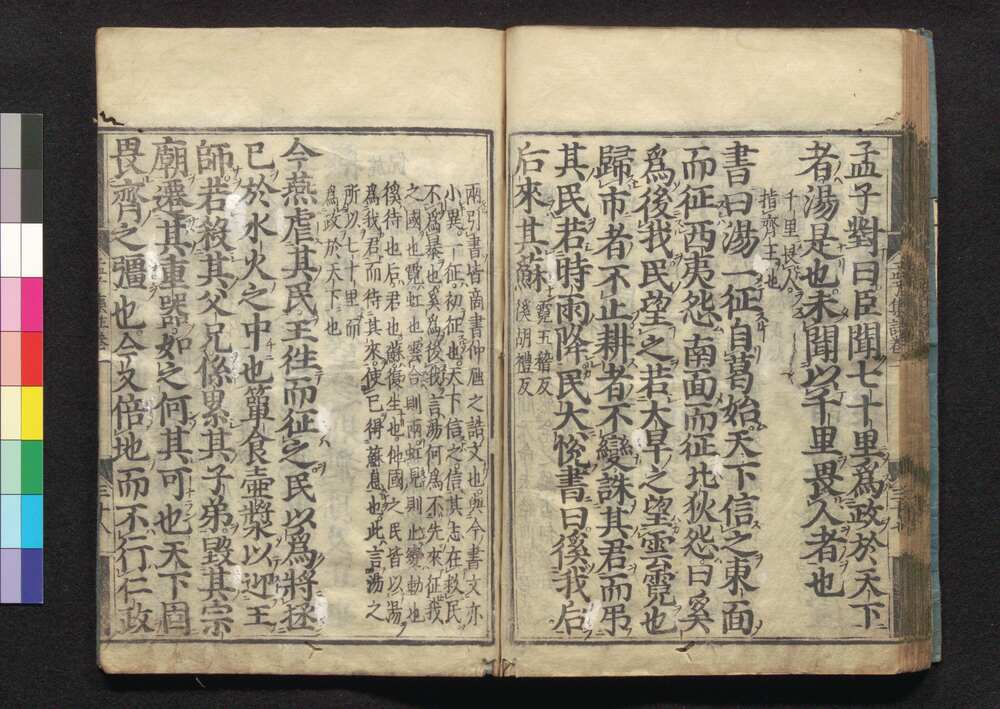 孟子對曰臣聞七十里爲政於天下
者湯是也未聞以千里畏人者也
千里畏人
指齊王也
書曰湯一征自葛始天下信之東面
而征西夷怨南面而征北狄怨曰奚
爲後我民望之若大旱之望雲霓也
歸市者不止耕者不變誅其君而弔
其民若時雨降民大悅書曰徯我后
后來其蘇
霓五稽反
徯胡禮反
兩引書皆商書仲虺之誥文也與今書文亦
小異一征初征也天下信之信其志在救民
不爲暴也奚爲後我言湯何爲不先來征我
之國也霓虹也雲合則雨虹見則止變動也
徯待也后君也蘇復生也他國之民皆以湯
爲我君而待其來使己得蘇息也此言湯之
所以七十里而
爲政於天下也
今燕虐其民王往而征之民以爲將拯
己於水火之中也簞食壺漿以迎王
師若殺其父兄係累其子弟毀其宗
廟遷其重器如之何其可也天下固
畏齊之彊也今又倍地而不行仁政